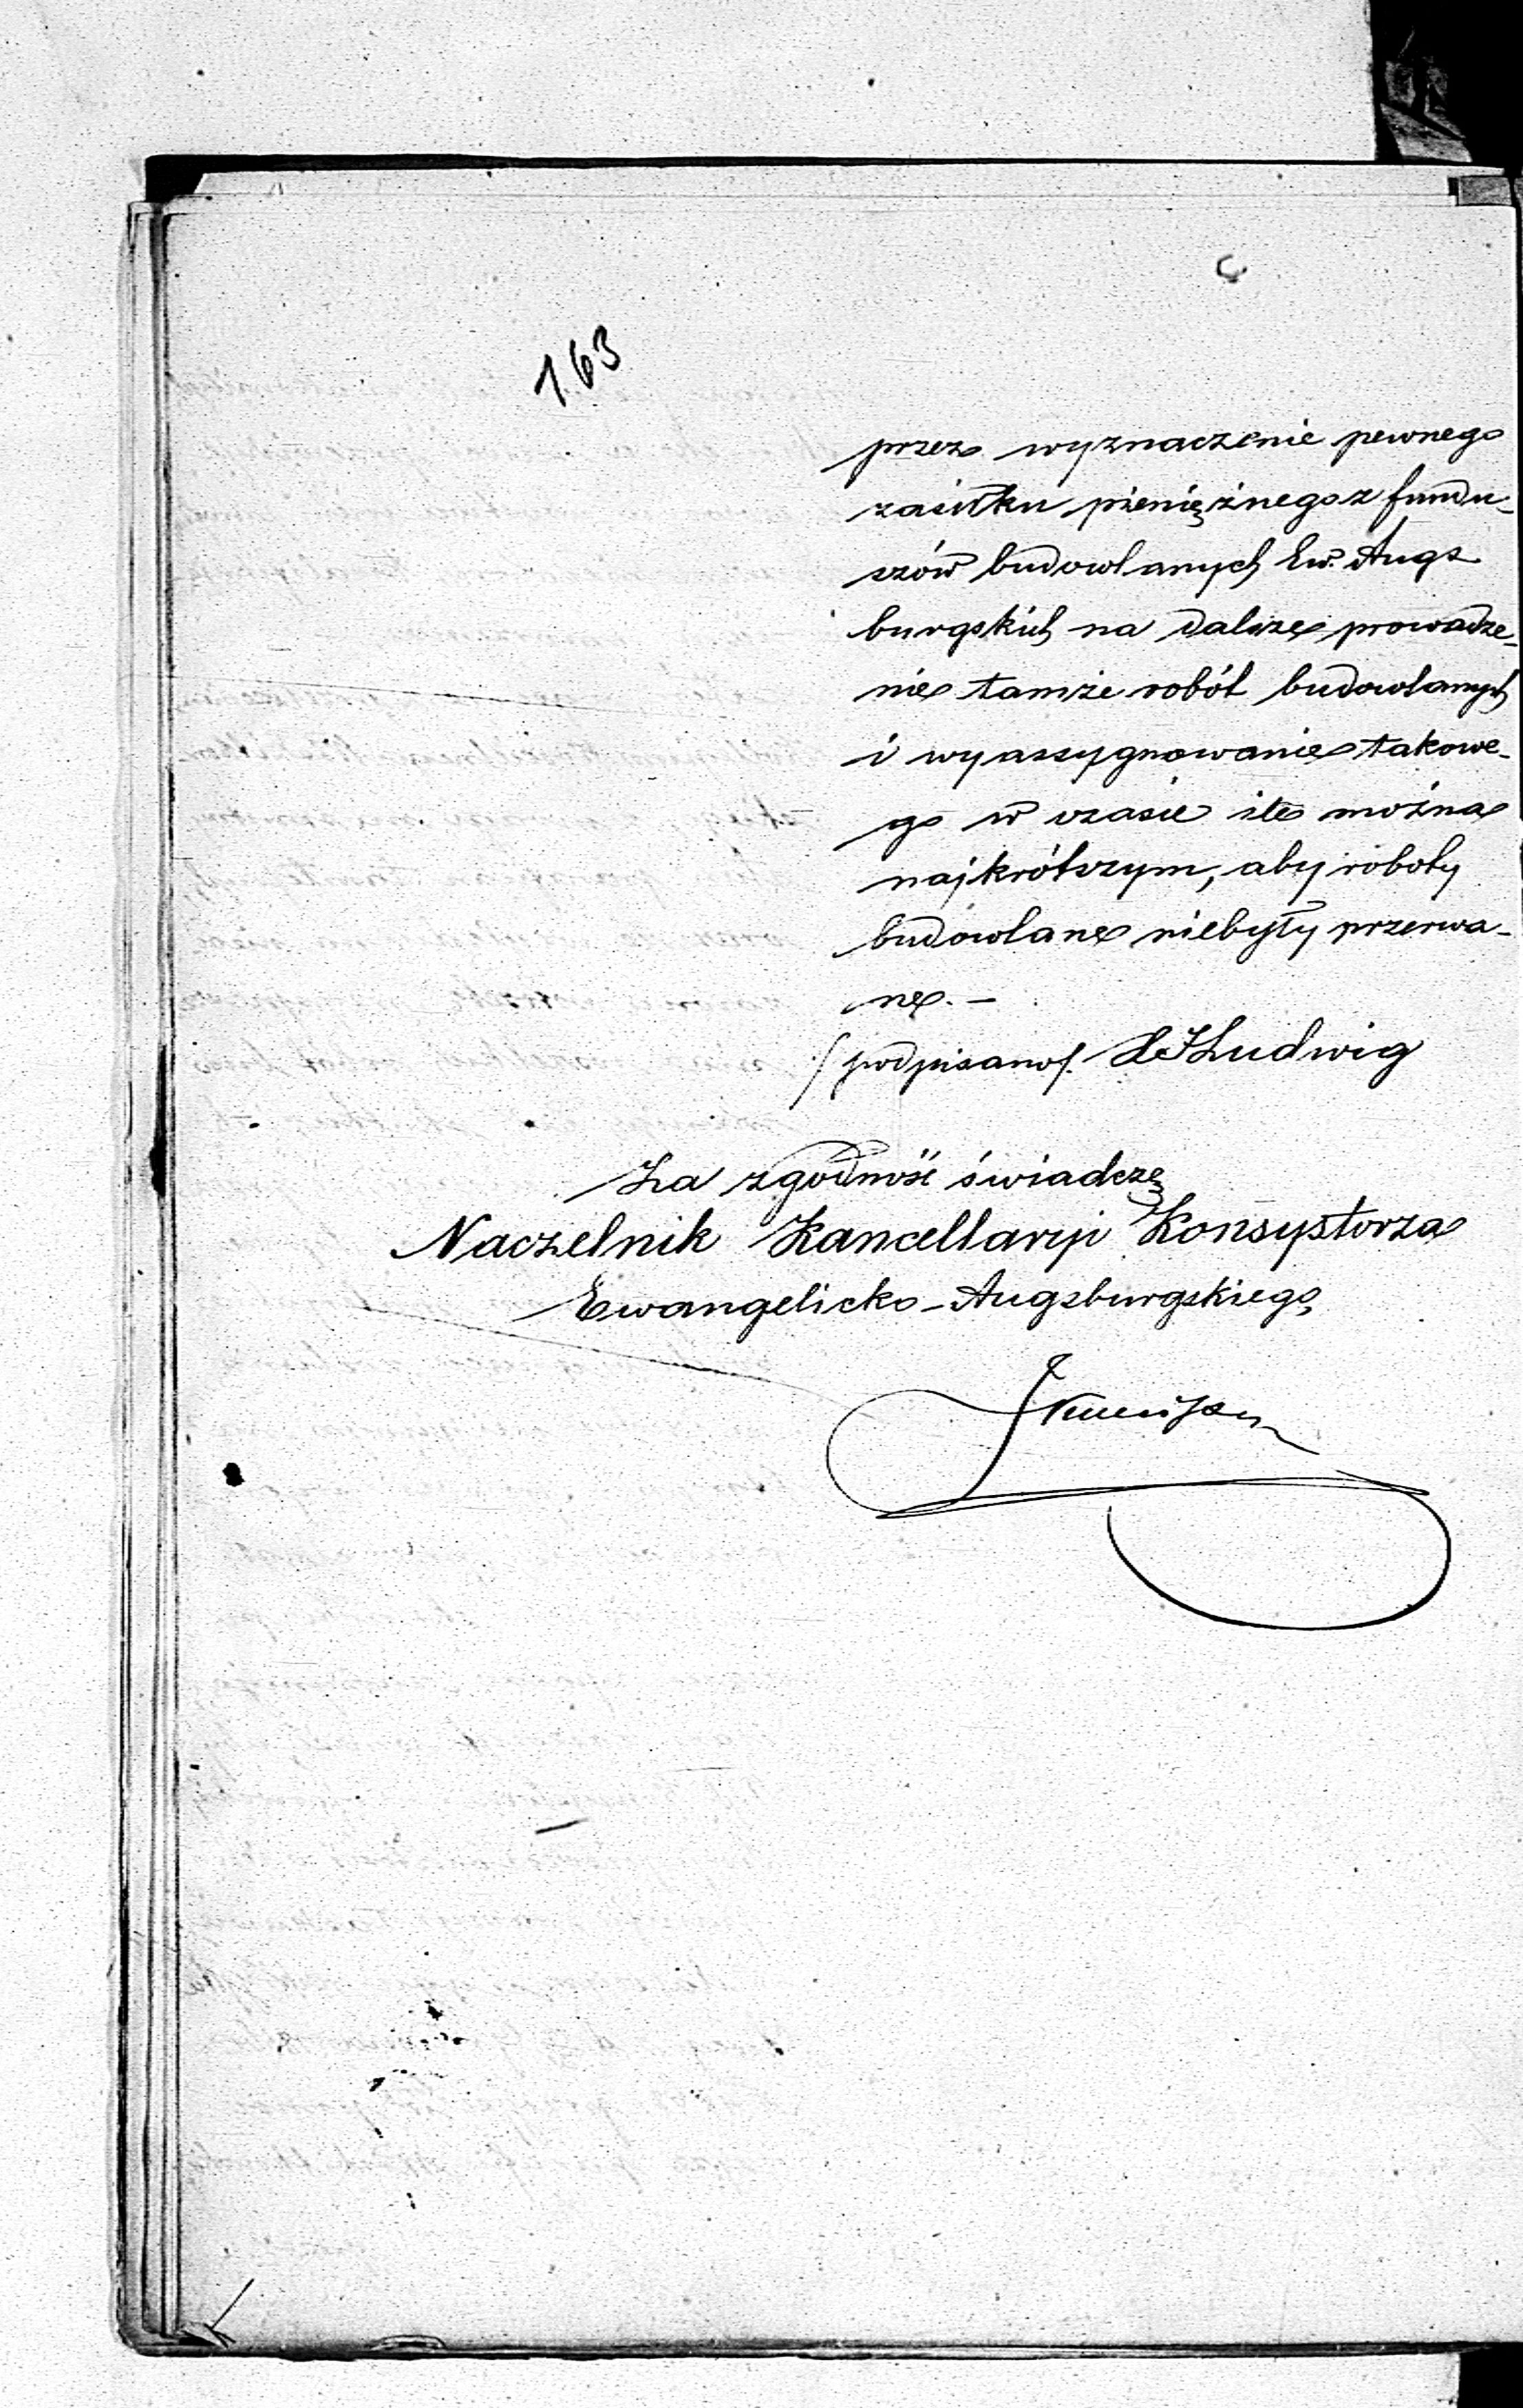 163
przez wyznaczenie pewnego
zasiłku pieniężnego z fundu-
szów budowlanych Ew. Augs
burgskich na dalsze prowadze-
nie tamże robót budowlanych
i wyassygnowanie takowe-
go w czasie ile można
najkrótszym, aby roboty
budowlane niebyły przerwa-
ne. —
/podpisano/. Ludwig
Za zgodność świadczę
Naczelnik Kancellaryi Konsystorza
Ewangelicko-Augsburgskiego,